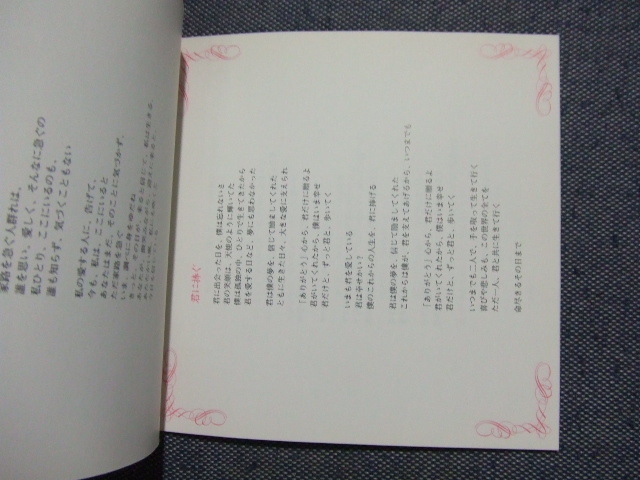 家路を急ぐ人群れは、
誰を思い、愛しく、そんなに急ぐの
私ひとり、ここにいるのも、
誰も知らず、気づくこともない
私の愛する人に、告げて、
今も、私は、ここにいると
あなたはまだ、そのことに気づかず、
ただ家路を急ぐ
君に捧ぐ
君に出会った日を、僕は忘れないさ
君の笑顔は、天使のように輝いてた
僕は孤独の中、ひとりで生きてきたから
君を愛する日など、夢にも思わなかった
君は僕の夢を、信じて励ましてくれた
ともに生きた日々、大きな愛に支えられ
「ありがとう」心から、君だけに贈るよ
君がいてくれたから、僕はいま幸せ
君だけと、ずっと君と、歩いてく
いまも君を愛している
君は幸せかい？
僕のこれからの人生を、君に捧げる
君は僕の夢を、信じて励ましてくれた
これからは僕が、君を支えてあげるから、いつまでも
「ありがとう」心から、君だけに贈るよ
君がいてくれたから、僕はいま幸せ
君だけと、ずっと君と、歩いてく
いつまでも二人で、手を取って生きて行く
喜びや悲しみも、この世界の全てを
ただ一人、君と共に生きて行く
命尽きるその日まで